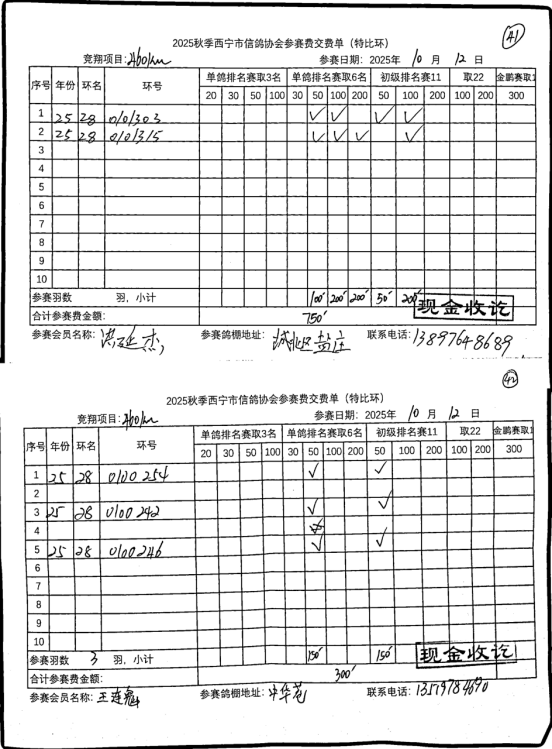 41
2025秋季西宁市信鸽协会参赛费交费单（特比环）
竞翔项目：460km 参赛日期：2025年 10 月 12 日
序号 年份 环名 环号 单鸽排名赛取3名 单鸽排名赛取6名 初级排名赛11 取22 金鹏赛取1
20 30 50 100 30 50 100 200 50 100 200 100 200 300
1 25 28 0101303 ✓ ✓ ✓ ✓
2 25 28 0101315 ✓ ✓ ✓ ✓
3
4
5
6
7
8
9
10
参赛羽数 羽，小计 100 200 200 50 200
现金收讫
合计参赛费金额： 750
参赛会员名称： 参赛鸽棚地址：城北区 联系电话：13897648689
42
2025秋季西宁市信鸽协会参赛费交费单（特比环）
竞翔项目：460km 参赛日期：2025年 10 月 12 日
序号 年份 环名 环号 单鸽排名赛取3名 单鸽排名赛取6名 初级排名赛11 取22 金鹏赛取1
20 30 50 100 30 50 100 200 50 100 200 100 200 300
1 25 28 0100254 ✓ ✓
2
3 25 28 0100242 ✓ ✓
4
5 25 28 0100246 ✓ ✓
6
7
8
9
10
参赛羽数 3 羽，小计 150 150
现金收讫
合计参赛费金额： 300
参赛会员名称：王连魁 参赛鸽棚地址：中华苑 联系电话：13519784690